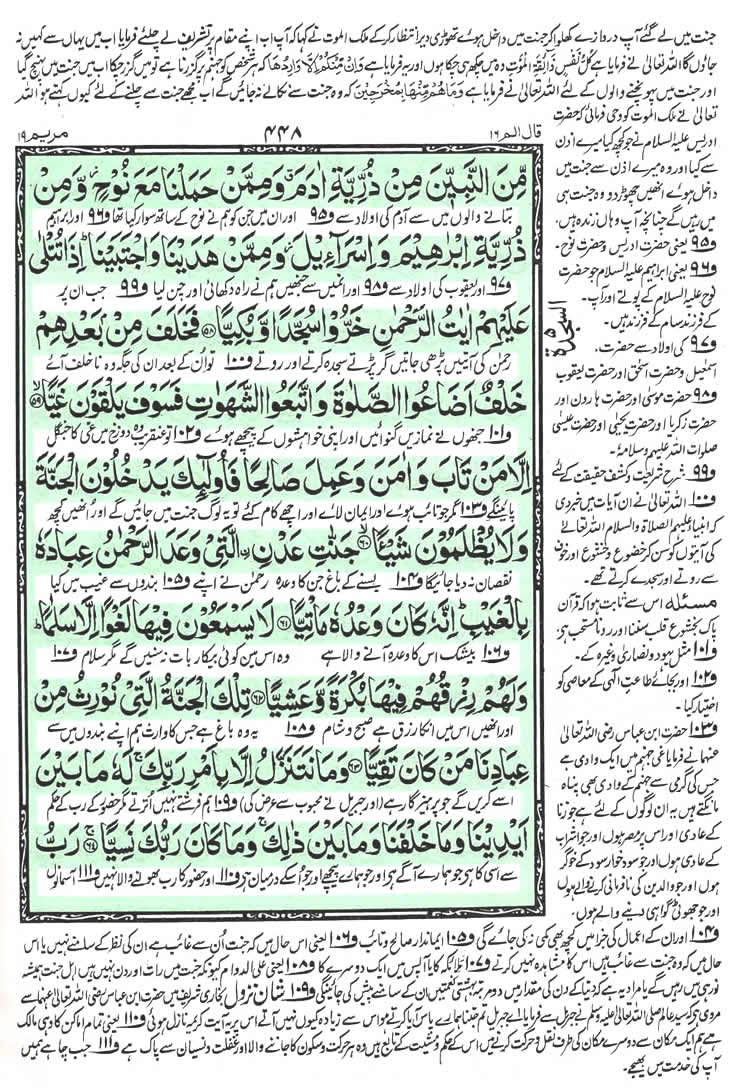 جنت میں لے گئے آپ دروازے کھلوا کر جنت میں داخل ہوئے تھوڑی دیر انتظار کرکے ملک الموت نے کہا کہ آپ اب اپنے مقام پر تشریف لے چلئے فرمایا اب میں یہاں سے کہیں نہ
جاؤں گا اللہ تعالیٰ نے فرمایا ہے كُلُّ نَفْسٍ ذَآئِقَةُ الْمَوْتِ وہ میں چکھ ہی چکا ہوں اور یہ فرمایا ہے وَاِنْ مِّنْكُمْ اِلَّا وَارِدُهَا کہ ہر شخص کو جہنم پر گزرنا ہے تو میں گزر چکا اب میں جنت میں پہنچ گیا
اور جنت میں پہونچنے والوں کے لئے اللہ تعالیٰ نے فرمایا ہے وَمَاهُمْ مِّنْهَا بِمُخْرَجِيْنَ کہ وہ جنت سے نکالے نہ جائیں گے اب مجھے جنت سے چلنے کے لئے کیوں کہتے ہو اللہ
تعالیٰ نے ملک الموت کو وحی فرمائی کہ حضرت
قال الم ۱۶ ۴۴۸ مریم ۱۹
ادریس علیہ السلام نے جو کچھ کیا میرے اذن
سے کیا اور وہ میرے اذن سے جنت میں
داخل ہوئے انھیں چھوڑ دو وہ جنت ہی
میں رہیں گے چنانچہ آپ وہاں زندہ ہیں۔
ف۹۵ یعنی حضرت ادریس و حضرت نوح۔
ف۹۶ یعنی ابراہیم علیہ السلام جو حضرت
نوح علیہ السلام کے پوتے اور آپ
کے فرزند سام کے فرزند ہیں۔
ف۹۷ کی اولاد سے حضرت
اسمٰعیل و حضرت اسحٰق اور حضرت یعقوب
ف۹۸ حضرت موسیٰ اور حضرت ہارون اور
حضرت زکریا اور حضرت یحییٰ اور حضرت عیسیٰ
صلوات اللہ علیہم وسلامہ۔
ف۹۹ شرح شریعت و کشف حقیقت کے لئے
ف۱۰۰ اللہ تعالیٰ نے ان آیات میں خبر دی
کہ انبیاء علیہم الصلاة والسلام اللہ تعالیٰ
کی آیتوں کو سن کر خضوع و خشوع اور خوف
سے روتے اور سجدے کرتے تھے۔
مسئلہ اس سے ثابت ہوا کہ قرآن
پاک بخشوع قلب سننا اور رونا مستحب ہے
ف۱۰۱ مثل یہود و نصاریٰ وغیرہ کے۔
ف۱۰۲ اور بجائے طاعت الٰہی کے معاصی کو
اختیار کیا۔
ف۱۰۳ حضرت ابن عباس رضی اللہ تعالیٰ
عنہما نے فرمایا غی جہنم میں ایک وادی ہے
جس کی گرمی سے جہنم کے وادی بھی پناہ
مانگتے ہیں یہ ان لوگوں کے لئے ہے جو زنا
کے عادی اور اس پر مصر ہوں اور جو شراب
کے عادی ہوں اور جو سود خوار سود کے خوگر
ہوں اور جو والدین کی نافرمانی کرنے والے ہوں
اور جو جھوٹی گواہی دینے والے ہوں۔
السجدة
مِّنَ النَّبِيّٖنَ مِنْ ذُرِّيَّةِ اٰدَمَ وَمِمَّنْ حَمَلْنَا مَعَ نُوْحٍ وَّمِنْ
بتانے والوں میں سے آدم کی اولاد سے ف۹۵ اور ان میں جن کو ہم نے نوح کے ساتھ سوار کیا تھا ف۹۶ اور ابراہیم
ذُرِّيَّةِ اِبْرٰهِيْمَ وَاِسْرَآءِيْلَ وَمِمَّنْ هَدَيْنَا وَاجْتَبَيْنَا اِذَا تُتْلٰى
ف۹۷ اور یعقوب کی اولاد سے ف۹۸ اور انمیں سے جنھیں ہم نے راہ دکھائی اور چن لیا ف۹۹ جب ان پر
عَلَيْهِمْ اٰيٰتُ الرَّحْمٰنِ خَرُّوْا سُجَّدًا وَّبُكِيًّا ۵۸ فَخَلَفَ مِنْ بَعْدِهِمْ
رحمٰن کی آیتیں پڑھی جاتیں گر پڑتے سجدہ کرتے اور روتے ف۱۰۰ تو ان کے بعد ان کی جگہ وہ ناخلف آئے
خَلْفٌ اَضَاعُوا الصَّلٰوةَ وَاتَّبَعُوا الشَّهَوٰتِ فَسَوْفَ يَلْقَوْنَ غَيًّا ۵۹
ف۱۰۱ جنھوں نے نمازیں گنوائیں اور اپنی خواہشوں کے پیچھے ہوئے ف۱۰۲ تو عنقریب وہ دوزخ میں غی کا جنگل
اِلَّا مَنْ تَابَ وَاٰمَنَ وَعَمِلَ صَالِحًا فَاُولٰٓئِكَ يَدْخُلُوْنَ الْجَنَّةَ
پائینگے ف۱۰۳ مگر جو تائب ہوئے اور ایمان لائے اور اچھے کام کئے تو یہ لوگ جنت میں جائیں گے اور انھیں کچھ
وَلَا يُظْلَمُوْنَ شَيْئًا ۶۰ جَنّٰتِ عَدْنِ الَّتِيْ وَعَدَ الرَّحْمٰنُ عِبَادَهٗ
نقصان نہ دیا جائیگا ف۱۰۴ بسنے کے باغ جن کا وعدہ رحمٰن نے اپنے ف۱۰۵ بندوں سے غیب میں کیا
بِالْغَيْبِ اِنَّهٗ كَانَ وَعْدُهٗ مَاْتِيًّا ۶۱ لَا يَسْمَعُوْنَ فِيْهَا لَغْوًا اِلَّا سَلٰمًا
ف۱۰۶ بیشک اس کا وعدہ آنے والا ہے وہ اس میں کوئی بیکار بات نہ سنیں گے مگر سلام ف۱۰۷
وَلَهُمْ رِزْقُهُمْ فِيْهَا بُكْرَةً وَّعَشِيًّا ۶۲ تِلْكَ الْجَنَّةُ الَّتِيْ نُوْرِثُ مِنْ
اور انھیں اس میں انکا رزق ہے صبح و شام ف۱۰۸ یہ وہ باغ ہے جس کا وارث ہم اپنے بندوں میں سے
عِبَادِنَا مَنْ كَانَ تَقِيًّا ۶۳ وَمَا نَتَنَزَّلُ اِلَّا بِاَمْرِ رَبِّكَ لَهٗ مَا بَيْنَ
اسے کریں گے جو پرہیزگار ہے (اور جبریل نے محبوب سے عرض کی) ف۱۰۹ ہم فرشتے نہیں اترتے مگر حضور کے رب کے حکم
اَيْدِيْنَا وَمَا خَلْفَنَا وَمَا بَيْنَ ذٰلِكَ وَمَا كَانَ رَبُّكَ نَسِيًّا ۶۴ رَبُّ
سے اسی کا ہے جو ہمارے آگے ہے اور جو ہمارے پیچھے اور جو اسکے درمیان ہے ف۱۱۰ اور حضور کا رب بھولنے والا نہیں ف۱۱۱ آسمانوں
ف۱۰۴ اور ان کے اعمال کی جزا میں کچھ بھی کمی نہ کی جائے گی ف۱۰۵ ایماندار صالح و تائب ف۱۰۶ یعنی اس حال میں کہ جنت اُن سے غائب ہے ان کی نظر کے سامنے نہیں یا اس
حال میں کہ وہ جنت سے غائب ہیں اس کا مشاہدہ نہیں کرتے ف۱۰۷ ملائکہ کا یا آپس میں ایک دوسرے کا ف۱۰۸ یعنی علی الدوام کیونکہ جنت میں رات اور دن نہیں ہیں اہل جنت ہمیشہ
نور ہی میں رہیں گے یا مراد یہ ہے کہ دنیا کے دن کی مقدار میں دو مرتبہ بہشتی نعمتیں ان کے سامنے پیش کی جائینگی ف۱۰۹ شان نزول بخاری شریف میں حضرت ابن عباس رضی اللہ تعالیٰ عنہما سے
مروی ہے کہ سید عالم صلی اللہ تعالیٰ علیہ وسلم نے جبریل سے فرمایا اے جبریل تم جتنا ہمارے پاس آیا کرتے ہو اس سے زیادہ کیوں نہیں آتے اس پر یہ آیت کریمہ نازل ہوئی ف۱۱۰ یعنی تمام اماکن کا وہی مالک
ہے ہم ایک مکان سے دوسرے مکان کی طرف نقل و حرکت کرنے میں اس کے حکم و مشیت کے تابع ہیں وہ ہر حرکت و سکون کا جاننے والا اور غفلت و نسیان سے پاک ہے ف۱۱۱ جب چاہے ہمیں
آپ کی خدمت میں بھیجے۔